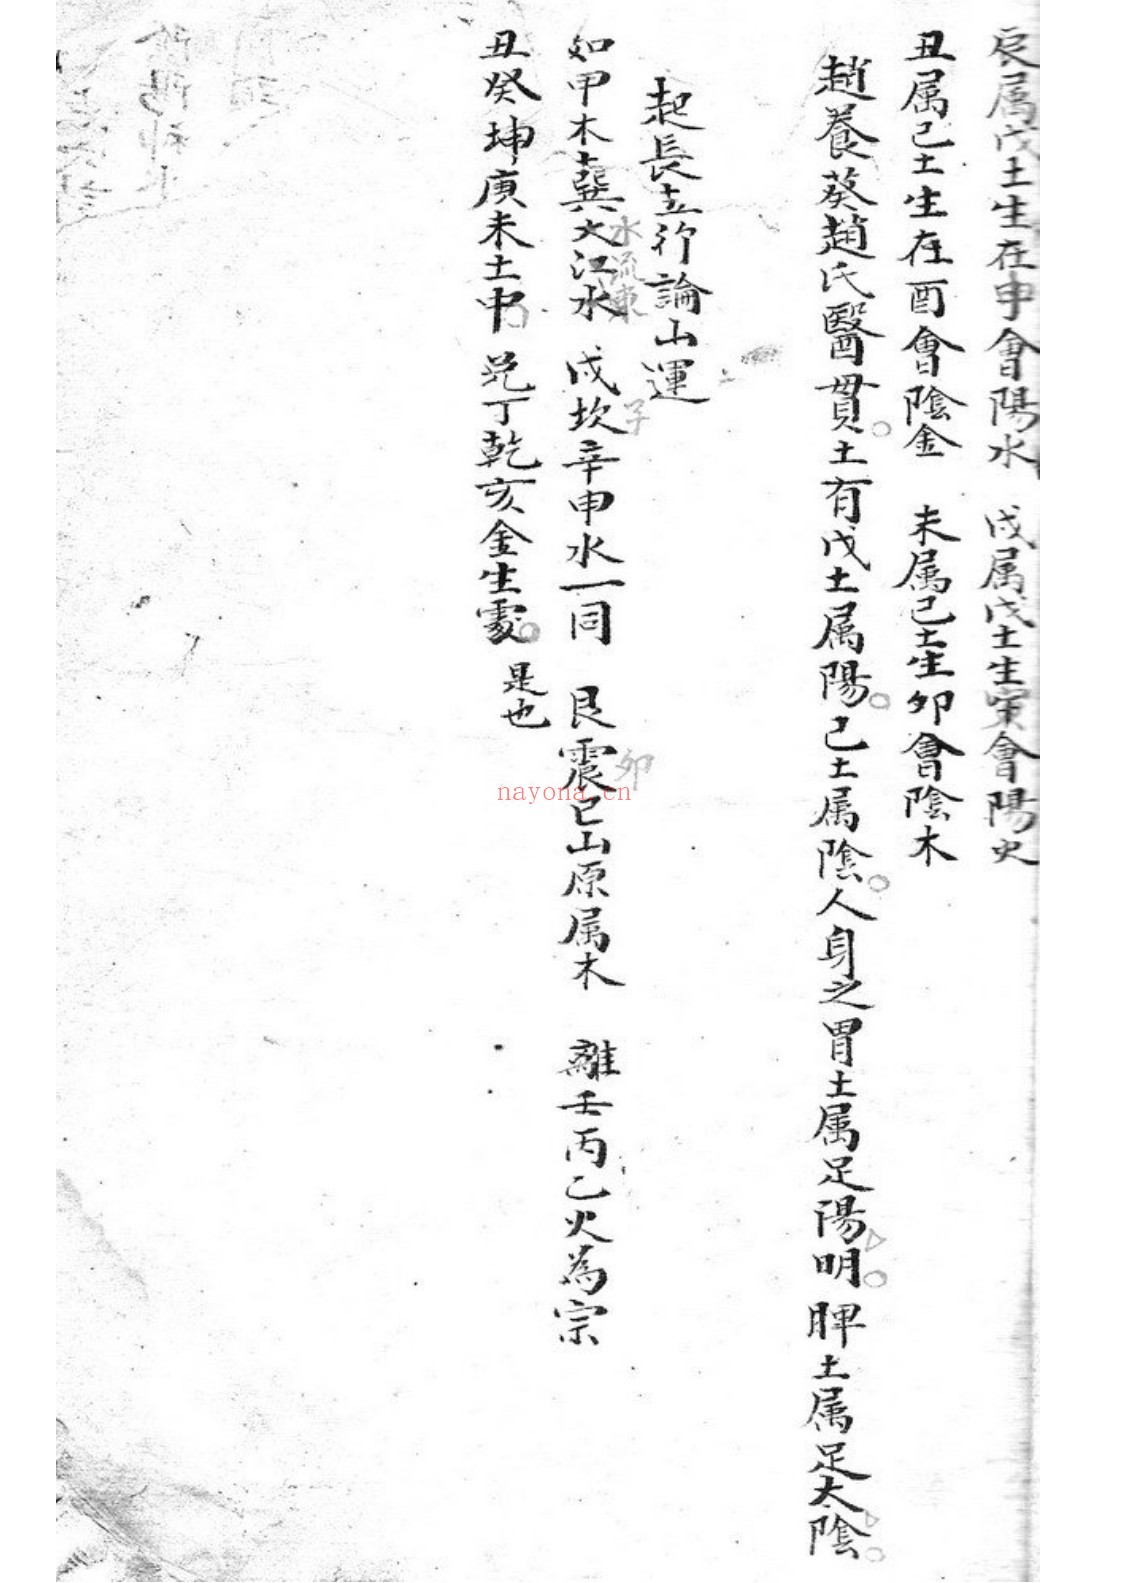 辰属戊土生在申會陽水 戌属戊土生寅會陽火
丑属己土生在酉會陰金 未属己土生卯會陰木
趙養葵趙氏醫貫土有戊土属陽己土属陰人身之胃土属足陽明脾土属足太陰
起長五行論山運
如甲木巽大江水 戌坎辛申水一同 艮震巳山原属木 離壬丙乙火為宗
水流東
子
卯
丑癸坤庚未土中 兑丁乾亥金生處 是也
nayona.cn